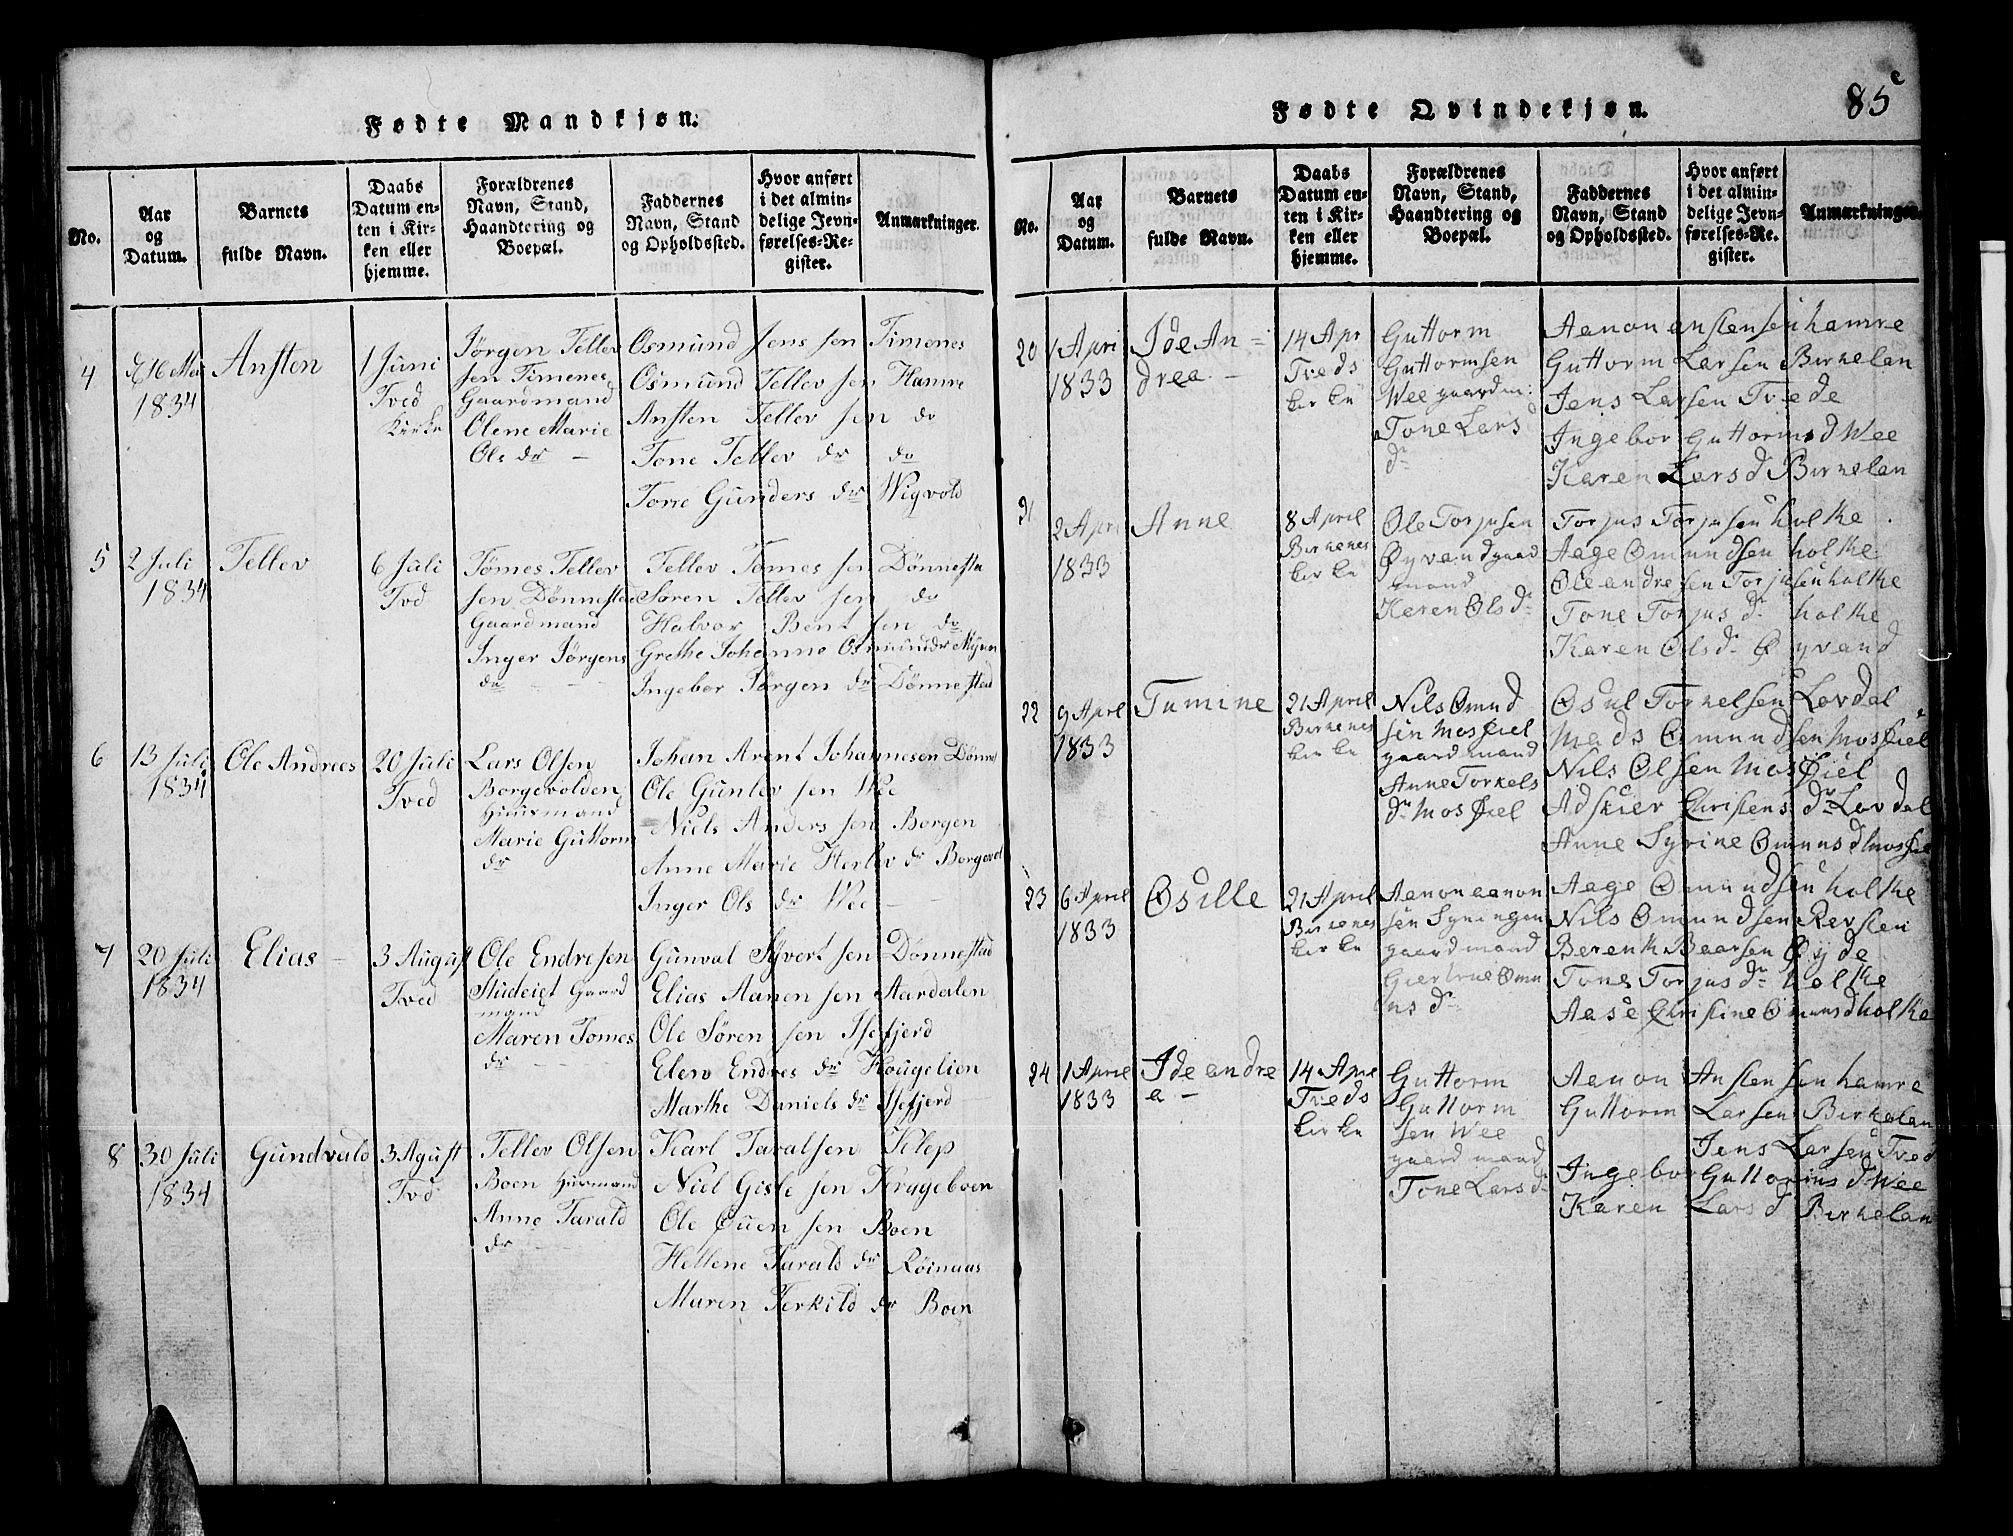 Fødte Mandkjøn.
No.
Aar
og
Datum.
Barnets
fulde Navn.
Daabs
Datum en-
ten i Kir-
ken eller
hjemme.
Forældrenes
Navn, Stand,
Haandtering og
Boepæl.
Faddernes
Navn, Stand
og Opholdssted.
Hvor anført
i det almin-
delige Jevn-
førelses-Re-
gister.
Anmærkninger.
4
16 Mai
1834
Ansten
1 Juni
Tved
Kirke
Jørgen Tellev
sen Timenes
Gaardmand
Olene Marie
Ols dr
Osmund Jens sen Timenes
Osmund Tellev sen Hamre
Ansten Tellev sen do
Tone Tellev dr do
Torre Gunders dr Wigvold
5
2 Juli
1834
Tellev
6 Juli
Tved
Tømes Tellev
sen Dønnestad
Gaardmand
Inger Jørgens
dr
Tellev Tomes sen Dønnesta
Søren Tellev sen do
Halvor Bent sen do
Grethe Johanne Osmunddr
Ingebor Jørgen dr Dønnestad
6
13 Juli
1834
Ole Andreas
20 Juli
Tved
Lars Olsen
Borgevolden
Huusmand
Marie Guttorm
dr
Johan Arent Johannesen Dønne
Ole Gunlev sen Wee
Niels Anders sen Borgen
Anne Marie Herlov dr Borgevol
Inger Ols dr Wee
7
20 Juli
1834
Elias
3 August
Tved
Ole Endresen
Studeigt Gaard
mand
Maren Tomes
dr
Gunval Syvert sen Dønnestad
Elias Aanen sen Aardalen
Ole Søren sen Isefjerd
Elen Endres dr Hougelien
Marthe Daniels dr Isefjerd
8
30 Juli
1834
Gundvald
3 Agust
Tved
Tellev Olsen
Boen Huusmand
Anne Tarald
dr
Karl Taralsen Klep
Niel Gisle sen Krageboen
Ole Ouen sen Boen
Hellene Tarald dr Røinaas
Maren Terkild dr Boen
Fødte Qvindekjøn.
85
No.
Aar
og
Datum.
Barnets
fulde Navn.
Daabs
Datum en-
ten i Kir-
ken eller
hjemme.
Forældrenes
Navn, Stand,
Haandtering og
Boepæl.
Faddernes
Navn, Stand
og Opholdssted.
Hvor anført
i det almin-
delige Jevn-
førelses-Re-
gister.
Anmærkninger.
20
1 Apri
1833
Ide An-
drea
14 Apr
Tveds
kirke
Guttorm
Guttormsen
Wee gaardm:
Tone Lars
dr
Aenon anstensen hamre
Guttorm Larsen Birkelan
Jens Larsen Tvede
Ingebor Guttorms d Wee
Karen Lars d Birkelan
21
2 Apri
1833
Anne
8 April
Birkenes
kirke
Øle Torjusen
Øyvand gaard
mand
Karen Øls dr
Torjus Torjusen holke
Aage Ømundsen holke
Øle andresen Torjusen holke
Tone Torjus dr holke
Karen Øls dr Øyvand
22
9 April
1833
Tumine
21 April
Birkenes
kirke
Nils Ømund
sen Mosfiel
gaard mand
Anne Torkels
dr Mosfiel
Øsul Torkelsen Lovdal
Mads Ømundsen Mosfiel
Nils Ølsen Mosfiel
Adskier Christens dr Lovdal
Anne Syrine Ømuns d Mosfiel
23
6 April
1833
Øsille
21 April
Birkenes
kirke
Aenon aanon
sen Syningen
gaard mand
Giertrue Ømu
ns dr
Aage Ømundsen holke
Nils Ømundsen Revsten
Berenh Baarsen Øyde
Tone Torjus dr holke
Aase Christine Ømuns d holke
24
1 April
1833
Ide andre
a
14 Apre
Tveds
kirke
Guttorm
Guttorm
sen Wee
gaard mand
Tone Lars d
Aenon Anstensen hamre
Guttorm Larsen Birkelan
Jens Larsen Tved
Ingebor Guttorms d Wee
Karen Lars d Birkelan